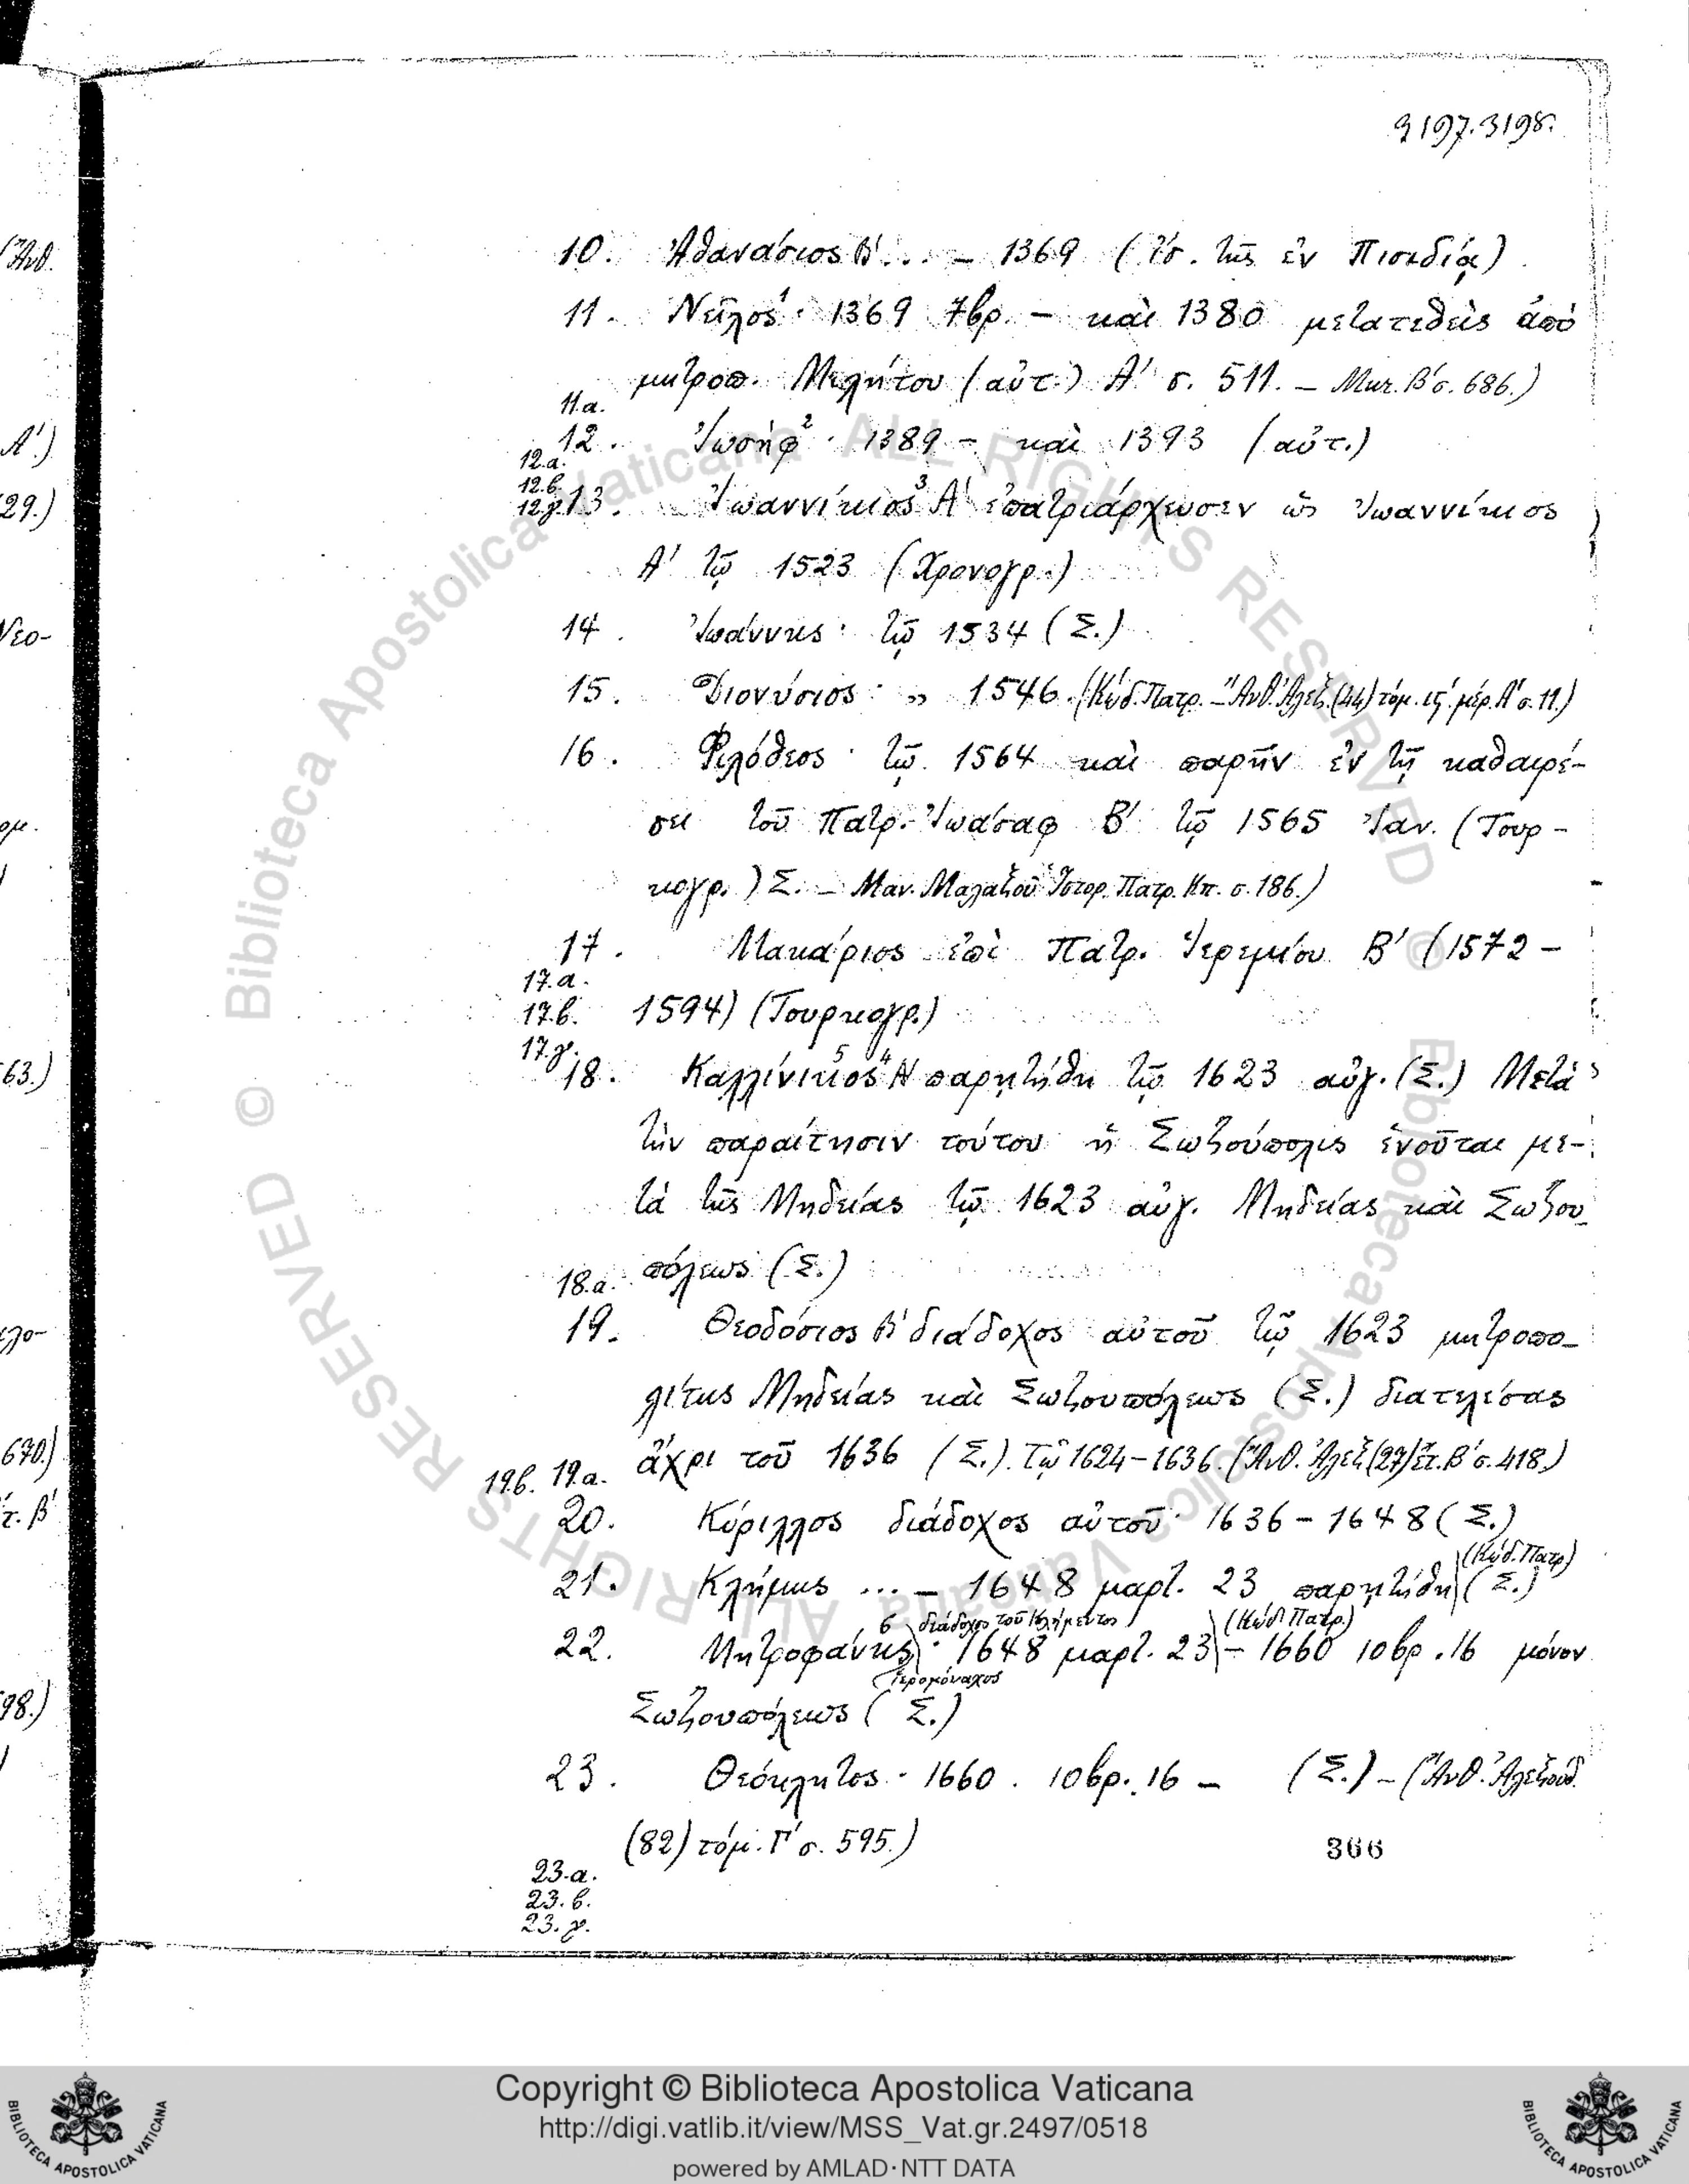 3197.3198.
10. Ἀθανάσιος Β΄... – 1369 (ἴσ. τῆς ἐν Πισιδίᾳ)
11. Νεῖλος¹· 1369 7βρ. – καὶ 1380 μετατεθεὶς ἀπὸ
μητροπ. Μιλήτου (αὐτ.) Α΄ σ. 511. – Μικ. Β΄ σ. 686.)
11.α.
12. Ἰωσήφ²· 1389 – καὶ 1393 (αὐτ.)
12.α.
12.β.
12.γ. 13. Ἰωαννίκιος³ Α΄ ἐπατριάρχευσεν ὡς Ἰωαννίκιος
Α΄ τῷ 1523 (Χρονογρ.)
14. Ἰωάννης· τῷ 1534 (Σ.)
15. Διονύσιος· „ 1546. (Κώδ. Πατρ. – Ἀνθ. Ἀλεξ. (44) τόμ. ιϛ΄. μέρ. Α΄ σ. 11.)
16. Φιλόθεος· τῷ 1564 καὶ παρῆν ἐν τῇ καθαιρέ-
σει τοῦ Πατρ. Ἰωάσαφ Β΄ τῷ 1565 Ἰαν. (Τουρ-
κογρ.) Σ. – Μαν. Μαλαξοῦ Ἱστορ. Πατρ. Κπ. σ. 186.)
17. Μακάριος ἐπὶ Πατρ. Ἱερεμίου Β΄ (1572 –
17.α.
17.β. 1594) (Τουρκογρ.)
17.γ.
18. Καλλίνικος⁵ Α΄⁴ παρῃτήθη τῷ 1623 αὐγ. (Σ.) Μετὰ
τὴν παραίτησιν τούτου ἡ Σωζούπολις ἑνοῦται με-
τὰ τῆς Μηδείας τῷ 1623 αὐγ. Μηδείας καὶ Σωζου
18.α. πόλεως (Σ.)
19. Θεοδόσιος Β΄ διάδοχος αὐτοῦ τῷ 1623 μητροπο-
λίτης Μηδείας καὶ Σωζουπόλεως (Σ.) διατελέσας
19.β. 19.α. ἄχρι τοῦ 1636 (Σ.). Τῷ 1624–1636. (Ἀνθ. Ἀλεξ. (27) ἔτ. Β΄ σ. 418.)
20. Κύριλλος διάδοχος αὐτοῦ· 1636 – 1648 (Σ.)
21. Κλήμης ... – 1648 μαρτ. 23 παρῃτήθη (Κώδ. Πατρ.) (Σ.)
22. Μητροφάνης⁶ ἱερομόναχος διάδοχος τοῦ Κλήμεντος· 1648 μαρτ. 23 (Κώδ. Πατρ.) – 1660 10βρ. 16 μόνον
Σωζουπόλεως (Σ.)
23. Θεόκλητος· 1660. 10βρ. 16 – (Σ.) – (Ἀνθ. Ἀλεξούδ.
(82) τόμ. Γ΄ σ. 595.)
366
23.α.
23.β.
23.γ.
Copyright © Biblioteca Apostolica Vaticana
http://digi.vatlib.it/view/MSS_Vat.gr.2497/0518
powered by AMLAD·NTT DATA